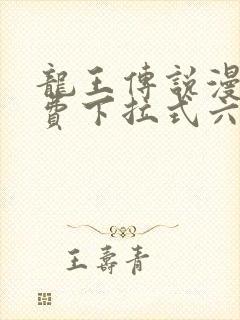 龍王傳說漫
費下拉式六
王壽青